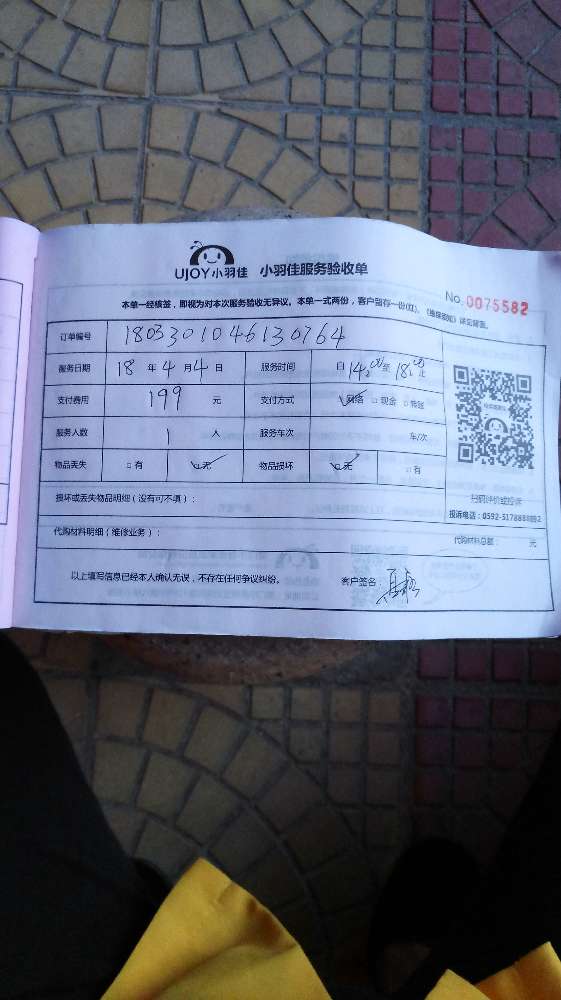 UJOY小羽佳 小羽佳服务验收单
No.0075582
本单一经核签，即视为对本次服务验收无异议。本单一式两份，客户留存一份(红)。《维保须知》详见背面。
订单编号 1803301046130764
服务日期 18 年 4 月 4 日 服务时间 自 14:00 至 18:00 止
支付费用 199 元 支付方式 ☑网络 □现金 □转账
服务人数 1 人 服务车次 车/次
物品丢失 □有 ☑无 物品损坏 ☑无 □有
扫码评价或投诉
损坏或丢失物品明细（没有可不填）：
投诉电话：0592-5178888转2
代购材料明细（维修业务）： 代购材料总额： 元
以上填写信息已经本人确认无误，不存在任何争议纠纷。 客户签名：